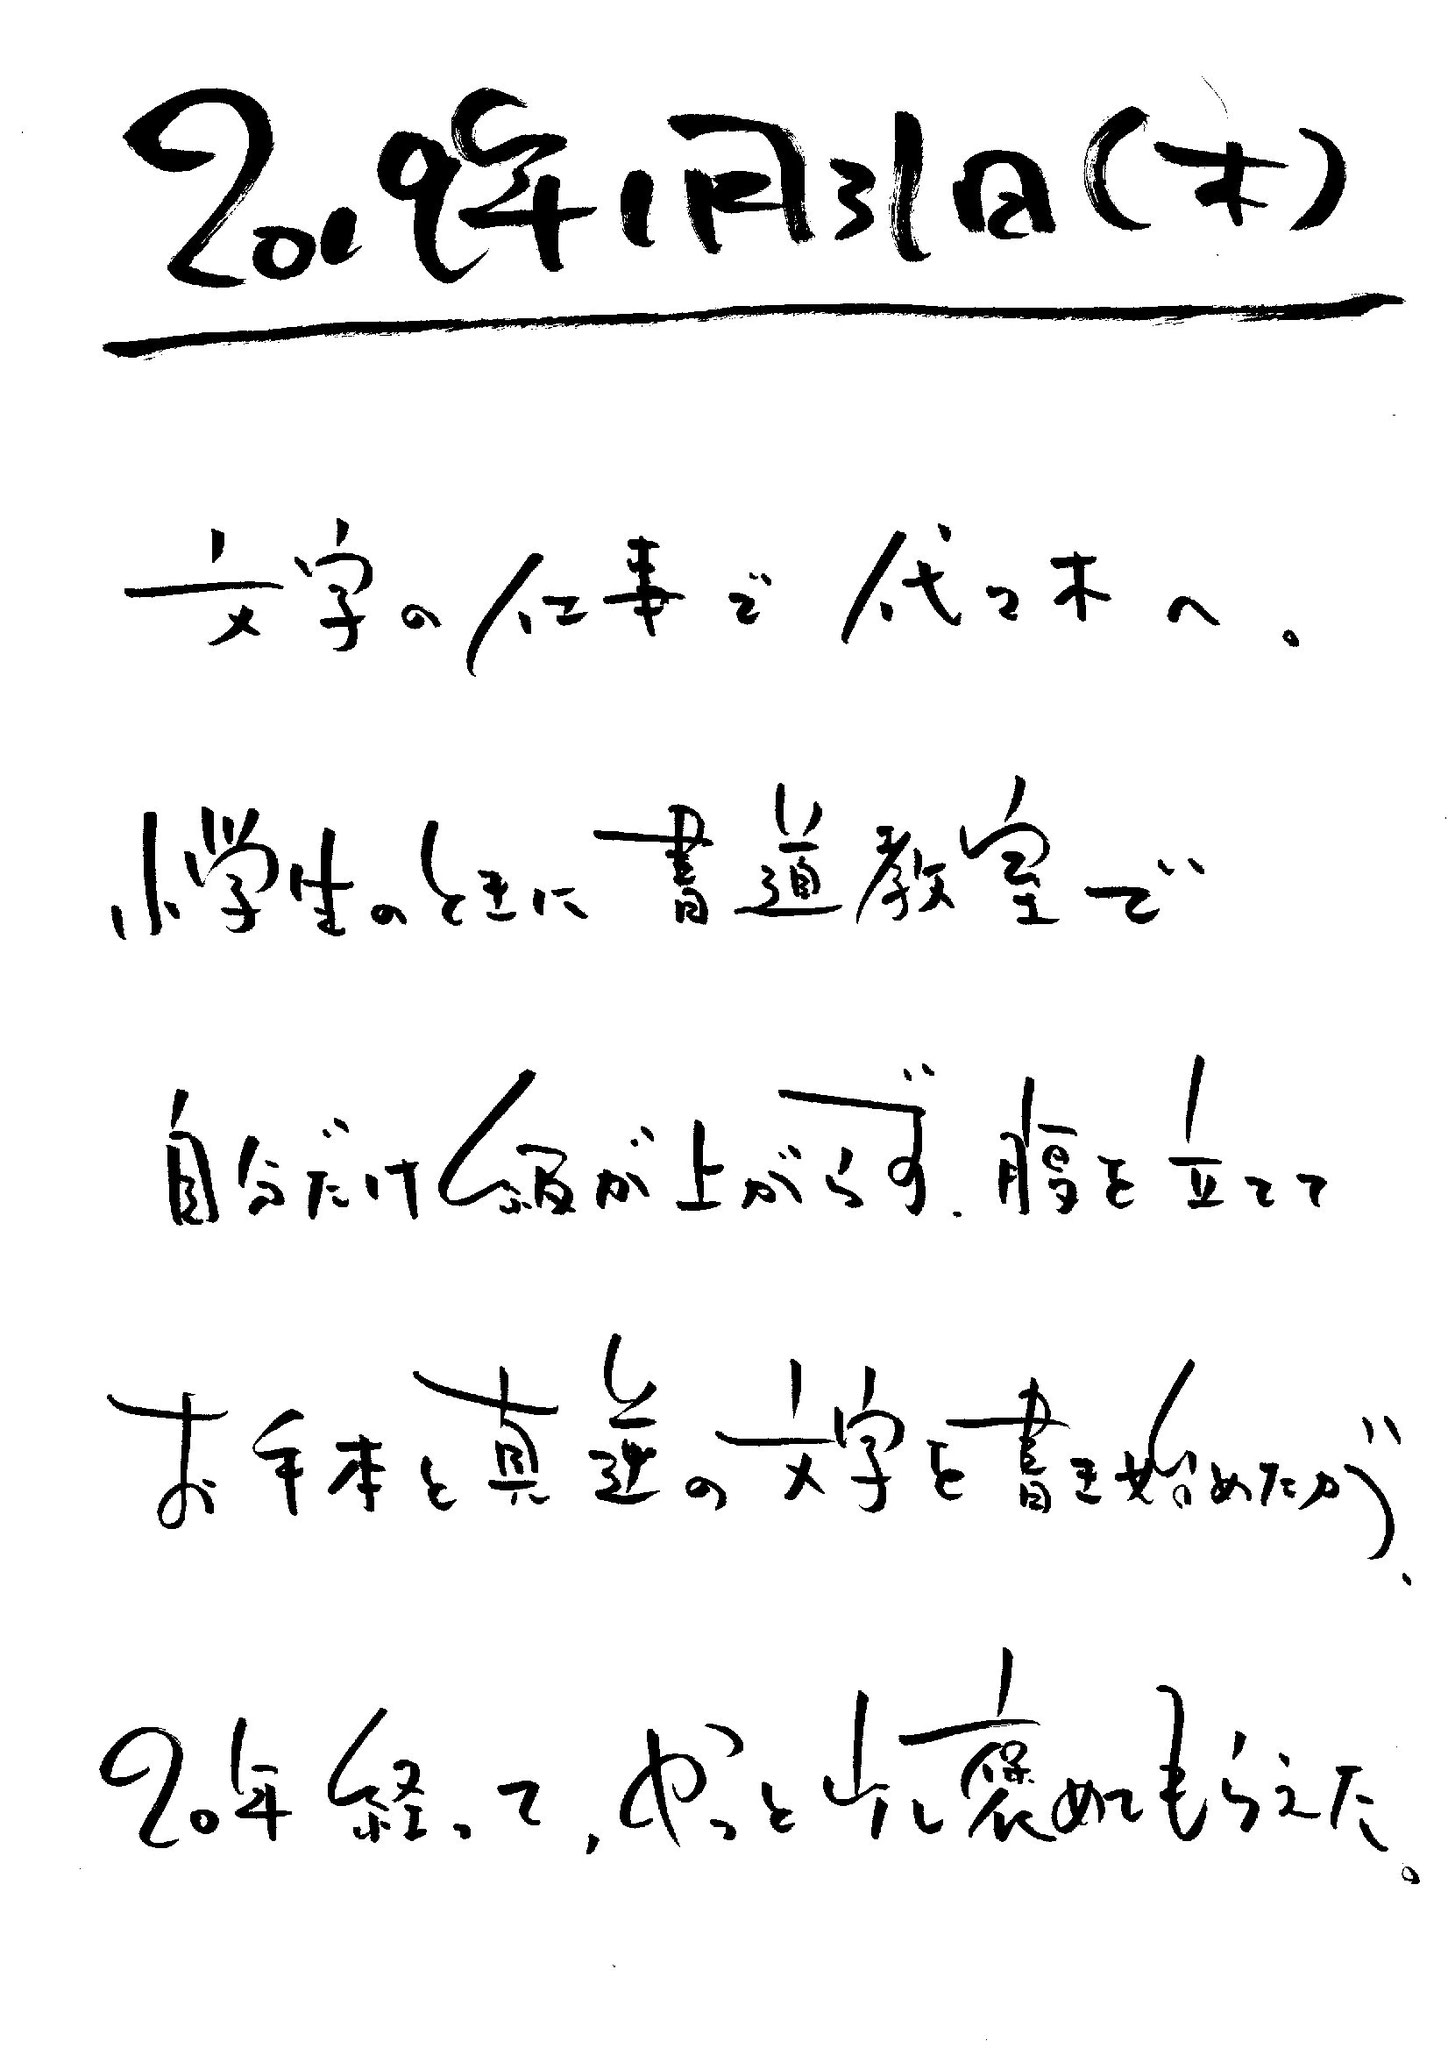 2019年1月31日(木)
文字の仕事で代々木へ。
小学生のときに書道教室で
自分だけ級が上がらず、腹を立てて
お手本と真逆の文字を書き始めたが、
20年経って、やっと少し褒めてもらえた。